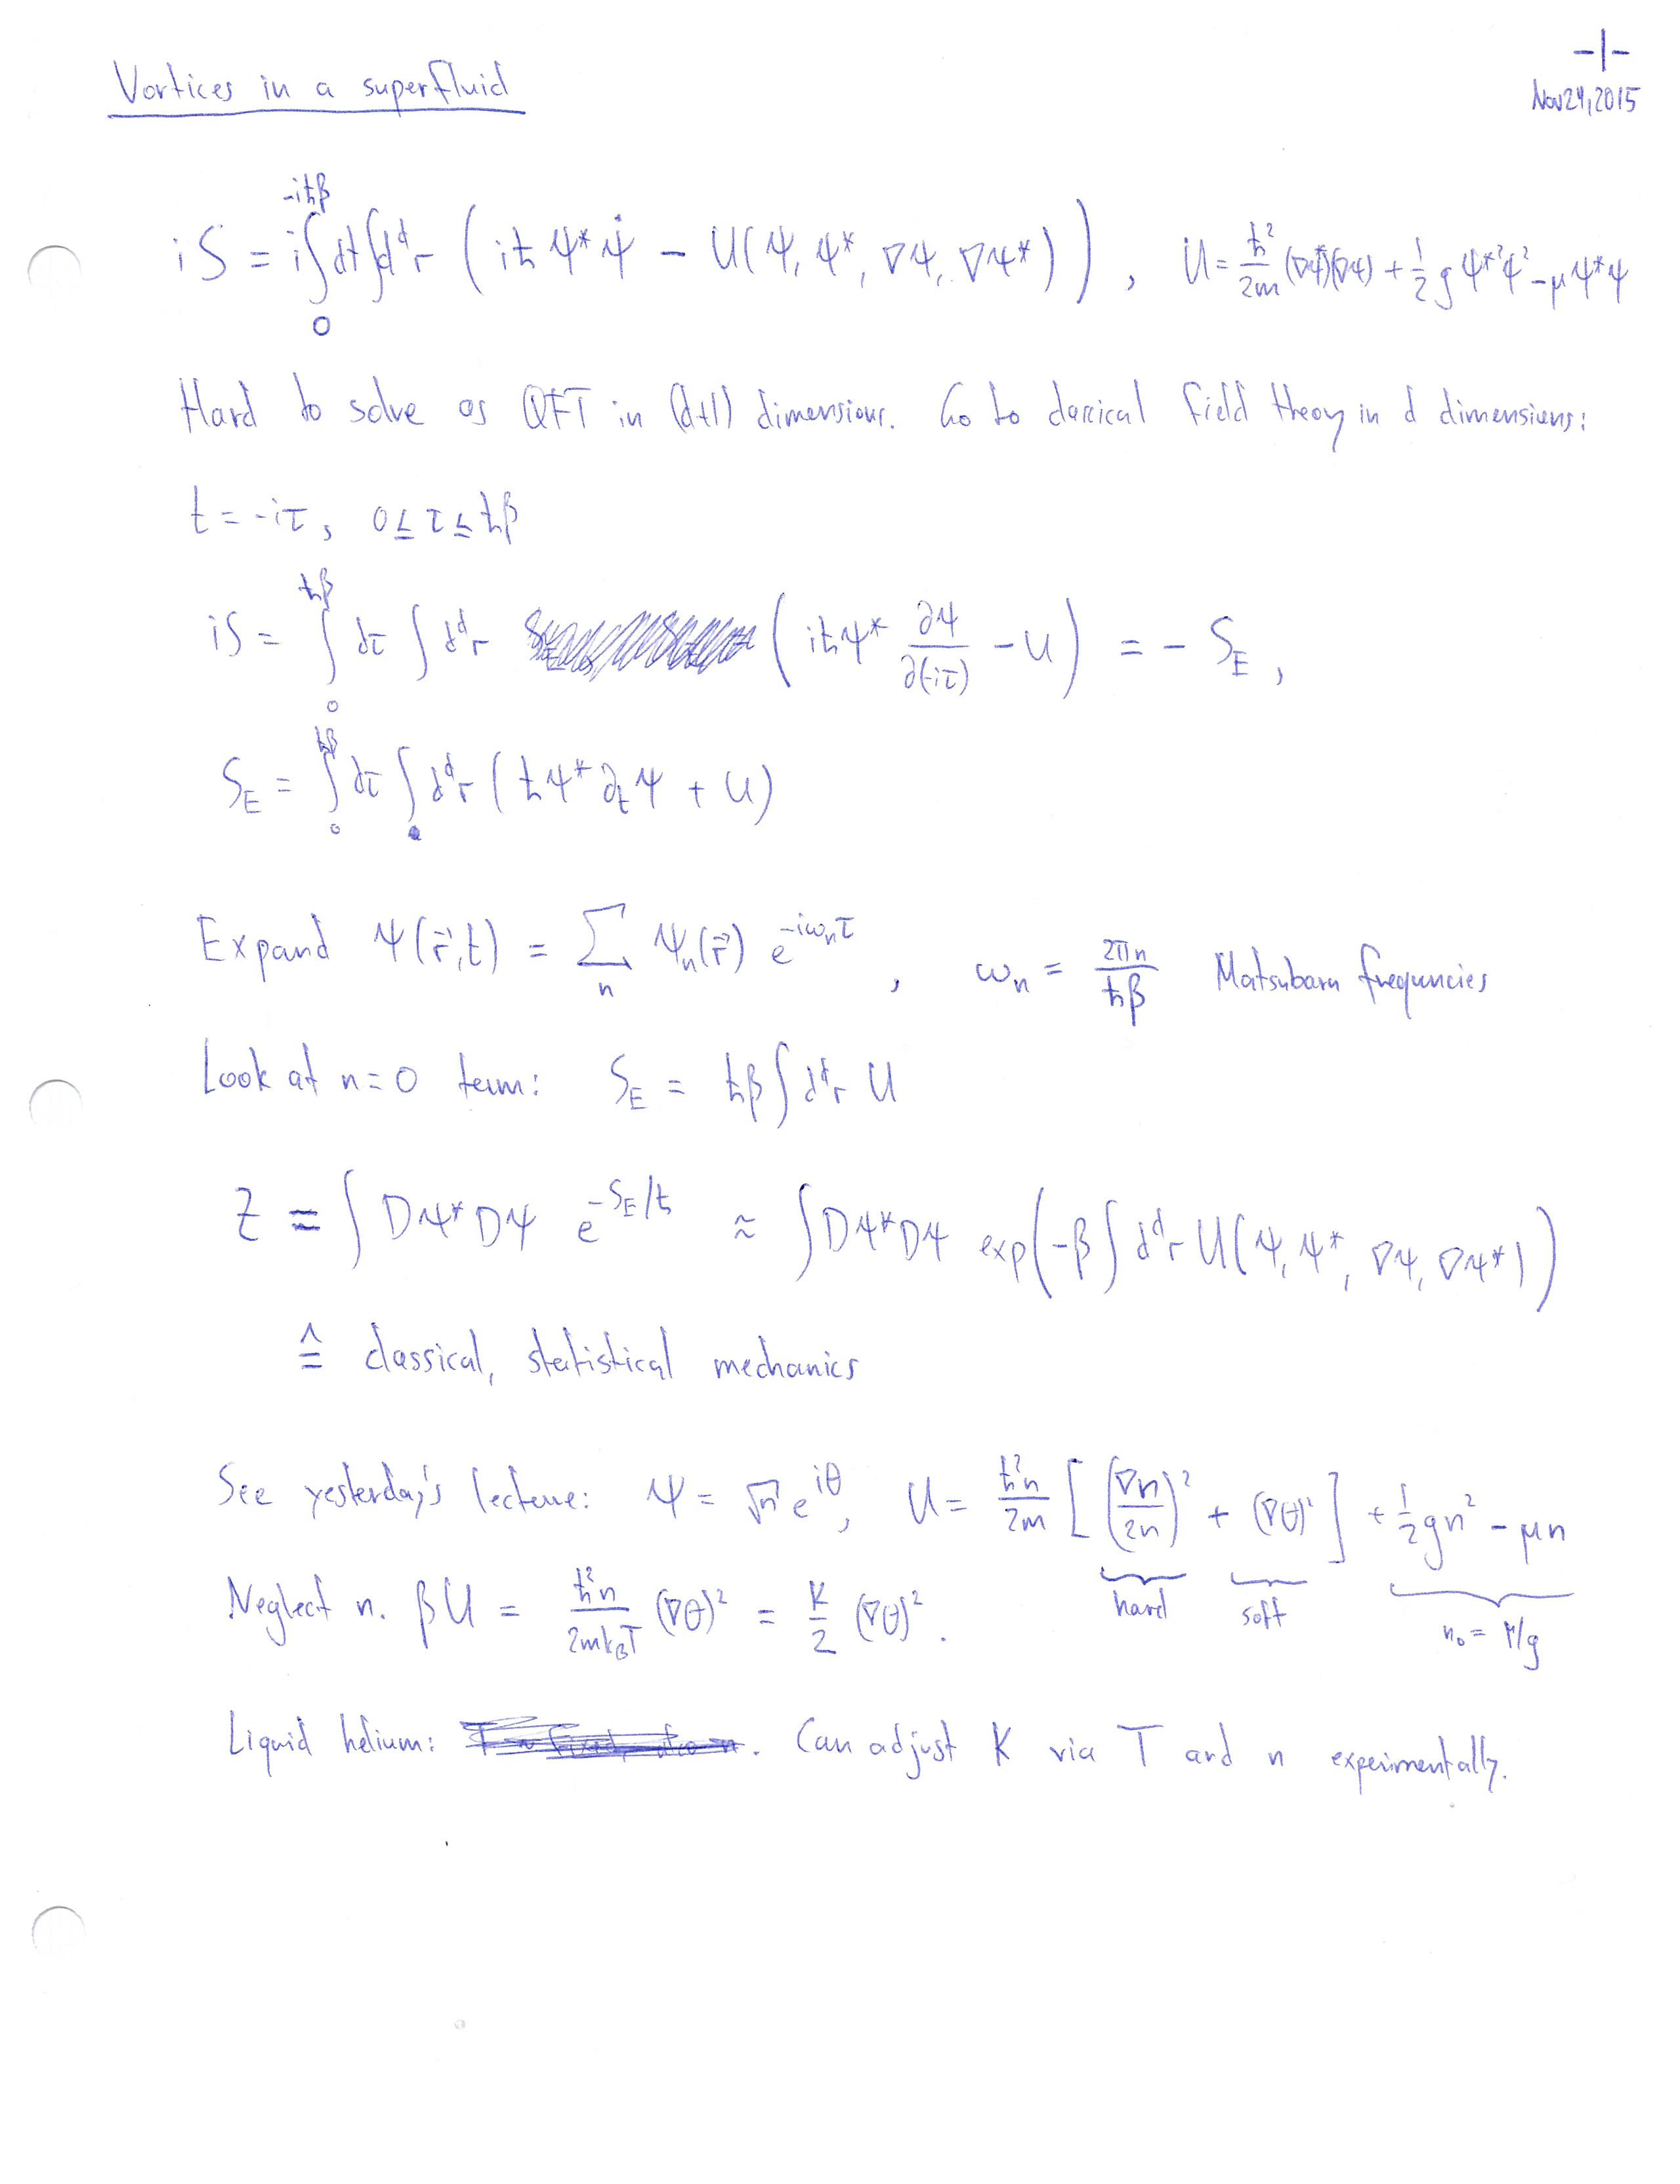 -1-
Vortices in a superfluid
Nov 24, 2015
iS = i∫₀^{-iħβ} dt ∫d^d r ( iħ ψ* ψ̇ − U(ψ, ψ*, ∇ψ, ∇ψ*) ) , U = ħ²/2m (∇ψ*)(∇ψ) + ½ g ψ*²ψ² − μψ*ψ
Hard to solve as QFT in (d+1) dimensions. Go to classical field theory in d dimensions:
t = -iτ, 0 ≤ τ ≤ ħβ
iS = ∫₀^{ħβ} dτ ∫ d^d r ( iħψ* ∂ψ/∂(-iτ) − U ) = − S_E ,
S_E = ∫₀^{ħβ} dτ ∫ d^d r ( ħψ* ∂_τ ψ + U )
Expand ψ(r⃗,t) = ∑_n ψ_n(r⃗) e^{-iω_nτ} , ω_n = 2πn/ħβ Matsubara frequncies
Look at n=0 term: S_E = ħβ ∫ d^d r U
Z = ∫ Dψ* Dψ e^{-S_E/ħ} ≈ ∫ Dψ* Dψ exp( -β ∫ d^d r U(ψ, ψ*, ∇ψ, ∇ψ*) )
≙ classical, statistical mechanics
See yesterday's lecture: ψ = √n e^{iθ}, U = ħ²n/2m [ (∇n/2n)² + (∇θ)² ] + ½ gn² − μn
hard soft n₀ = μ/g
Neglect n. βU = ħ²n/2mk_BT (∇θ)² = K/2 (∇θ)².
Liquid helium: . Can adjust K via T and n experimentally.